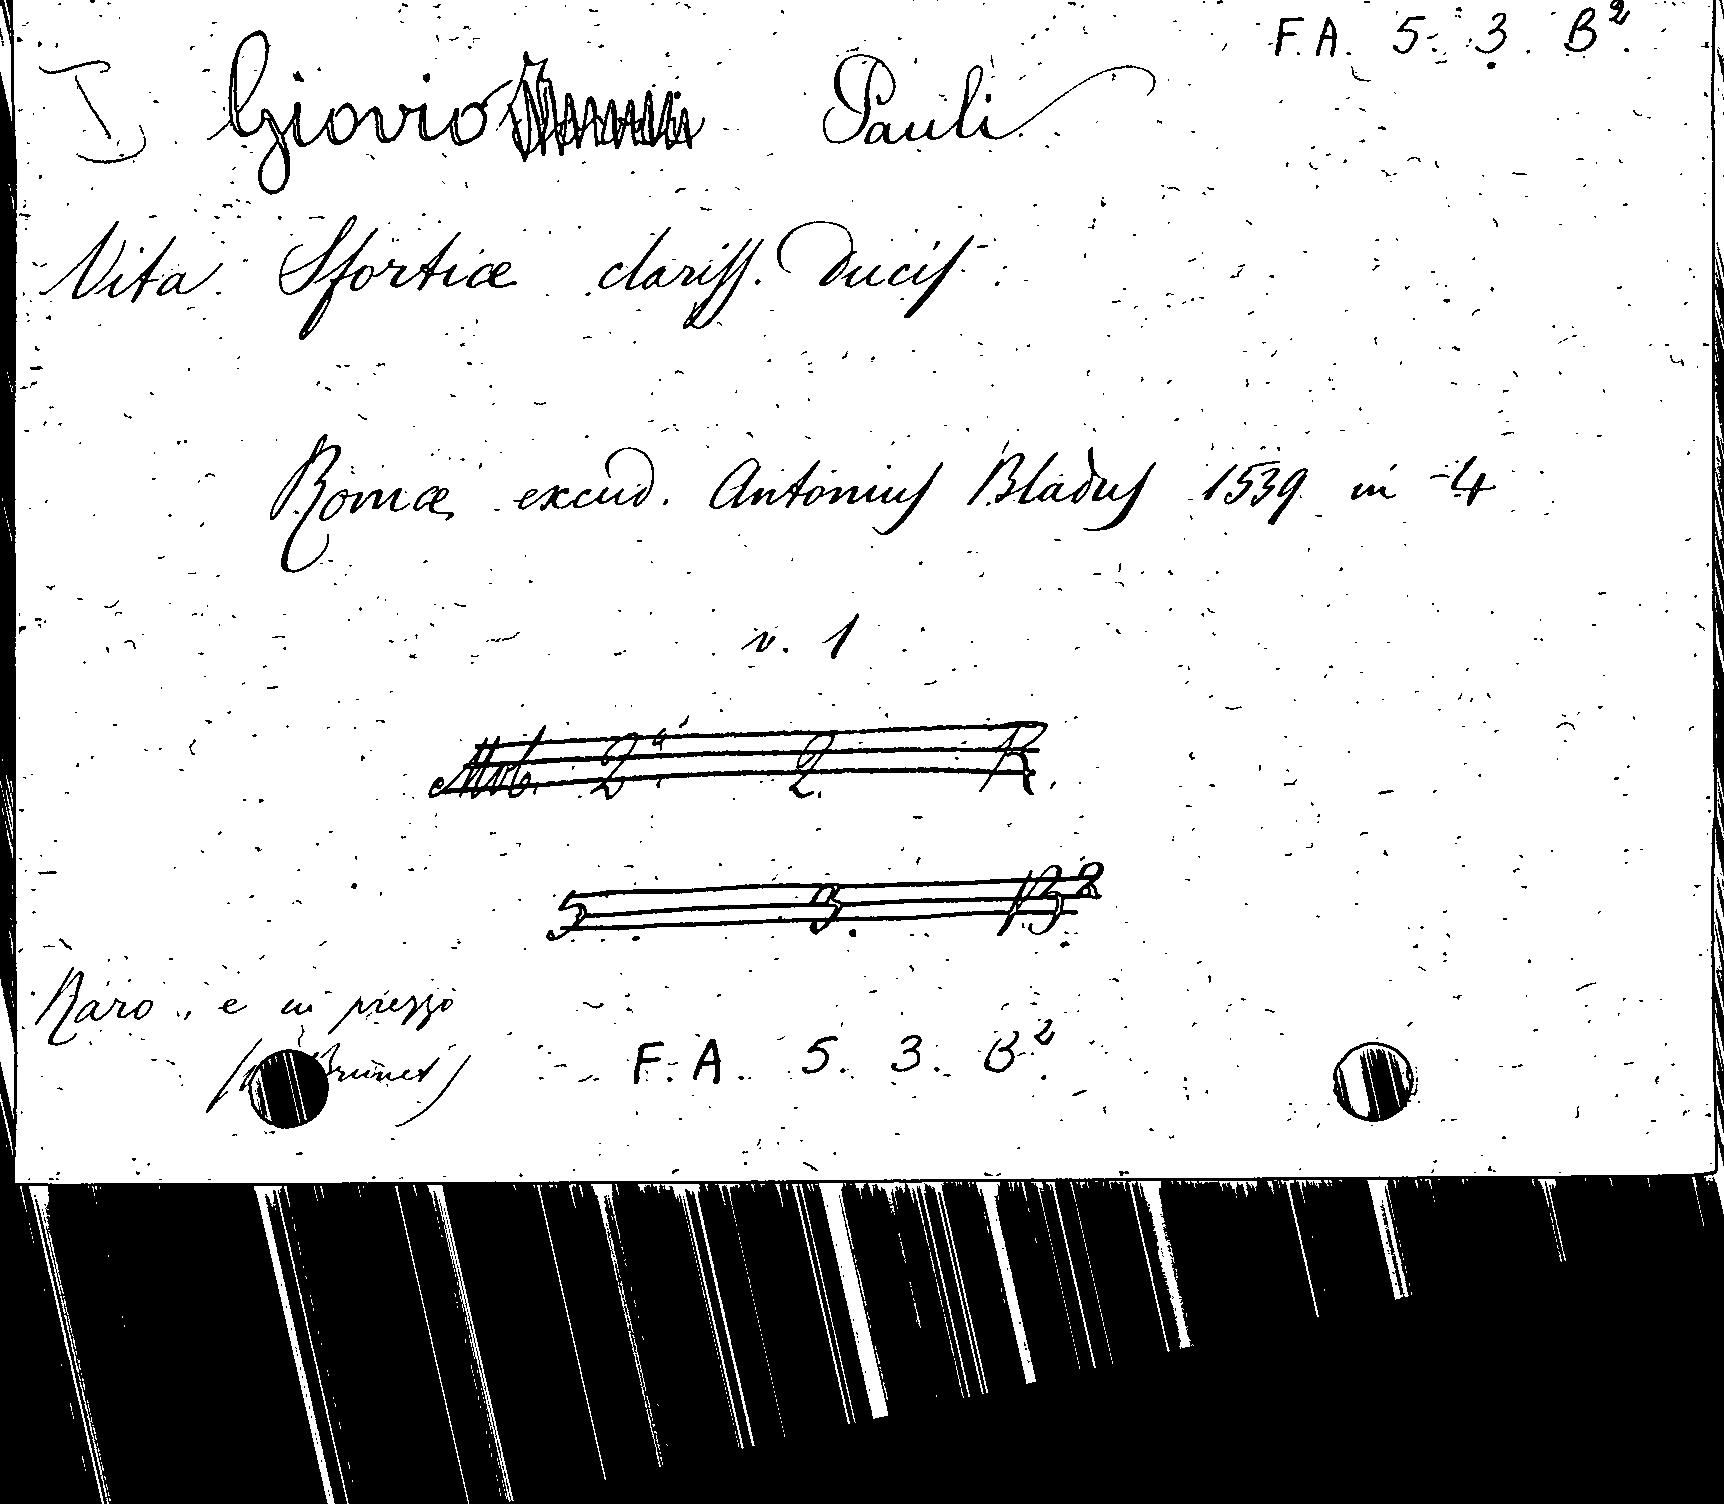 F.A. 5. 3. B².
I Giovio Pauli
Vita Sfortiæ clariss. Ducis.
Romæ excud. Antonius Bladus 1539 in-4
v. 1
Mob. 2ª. 2. R.
5. 3. B²
Raro, e in prezzo
Brunet)
F.A. 5. 3. B².